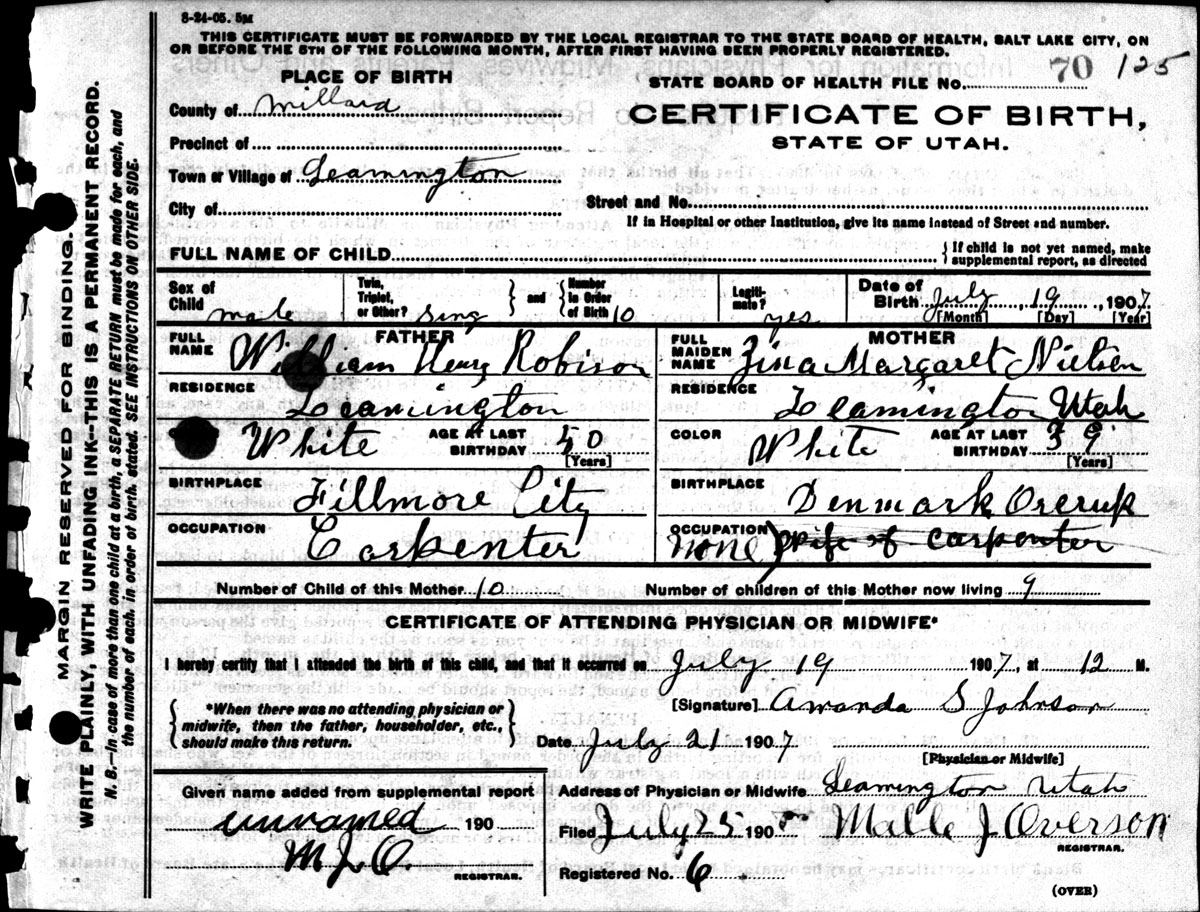 8-24-05. 5M
THIS CERTIFICATE MUST BE FORWARDED BY THE LOCAL REGISTRAR TO THE STATE BOARD OF HEALTH, SALT LAKE CITY, ON
OR BEFORE THE 5TH OF THE FOLLOWING MONTH, AFTER FIRST HAVING BEEN PROPERLY REGISTERED.
PLACE OF BIRTH
STATE BOARD OF HEALTH FILE NO. 70 125
County of Millard
CERTIFICATE OF BIRTH,
STATE OF UTAH.
Precinct of
Town or Village of Leamington
City of
Street and No.
If in Hospital or other Institution, give its name instead of Street and number.
FULL NAME OF CHILD
{If child is not yet named, make supplemental report, as directed
Sex of Child male
Twin, Triplet, or Other? sing } and { Number in Order of Birth 10
Legitimate? yes
Date of Birth July 19, 1907
[Month] [Day] [Year]
FATHER
FULL NAME William Henry Robison
RESIDENCE Leamington
White AGE AT LAST BIRTHDAY 50
[Years]
BIRTHPLACE Fillmore City
OCCUPATION Carpenter
MOTHER
FULL MAIDEN NAME Zina Margaret Nielsen
RESIDENCE Leamington Utah
COLOR White AGE AT LAST BIRTHDAY 39
[Years]
BIRTHPLACE Denmark
OCCUPATION None) Wife of Carpenter
Number of Child of this Mother 10
Number of children of this Mother now living 9
CERTIFICATE OF ATTENDING PHYSICIAN OR MIDWIFE*
I hereby certify that I attended the birth of this child, and that it occurred on July 19 1907, at 12 M.
{*When there was no attending physician or
midwife, then the father, householder, etc.,
should make this return.}
[Signature] Amanda S Johnson
Date July 21 1907
[Physician or Midwife]
Given name added from supplemental report
unnamed 190
M J O.
REGISTRAR.
Address of Physician or Midwife Leamington Utah
Filed July 25 1907 J Overson
REGISTRAR.
Registered No. 6
(OVER)
MARGIN RESERVED FOR BINDING.
WRITE PLAINLY, WITH UNFADING INK--THIS IS A PERMANENT RECORD.
N. B.--In case of more than one child at a birth, a SEPARATE RETURN must be made for each, and
the number of each, in order of birth, stated. SEE INSTRUCTIONS ON OTHER SIDE.